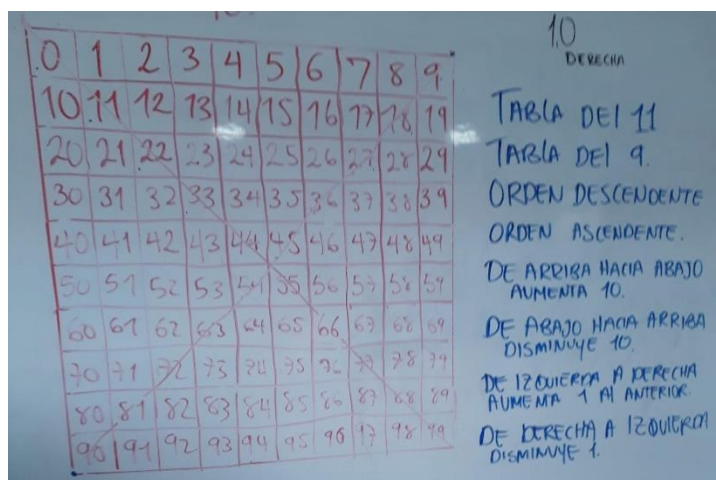 0 1 2 3 4 5 6 7 8 9
10 11 12 13 14 15 16 17 18 19
20 21 22 23 24 25 26 27 28 29
30 31 32 33 34 35 36 37 38 39
40 41 42 43 44 45 46 47 48 49
50 51 52 53 54 55 56 57 58 59
60 61 62 63 64 65 66 67 68 69
70 71 72 73 74 75 76 77 78 79
80 81 82 83 84 85 86 87 88 89
90 91 92 93 94 95 96 97 98 99
10
DERECHA
TABLA DEl 11
TABLA DEl 9.
ORDEN DESCENDENTE
ORDEN ASCENDENTE.
DE ARRIBA HACIA ABAJO
AUMENTA 10.
DE ABAJO HACIA ARRIBA
DISMINUYE 10.
DE IZQUIERDA A DERECHA
AUMENTA 1 Al ANTERIOR.
DE DERECHA A IZQUIERDA
DISMINUYE 1.